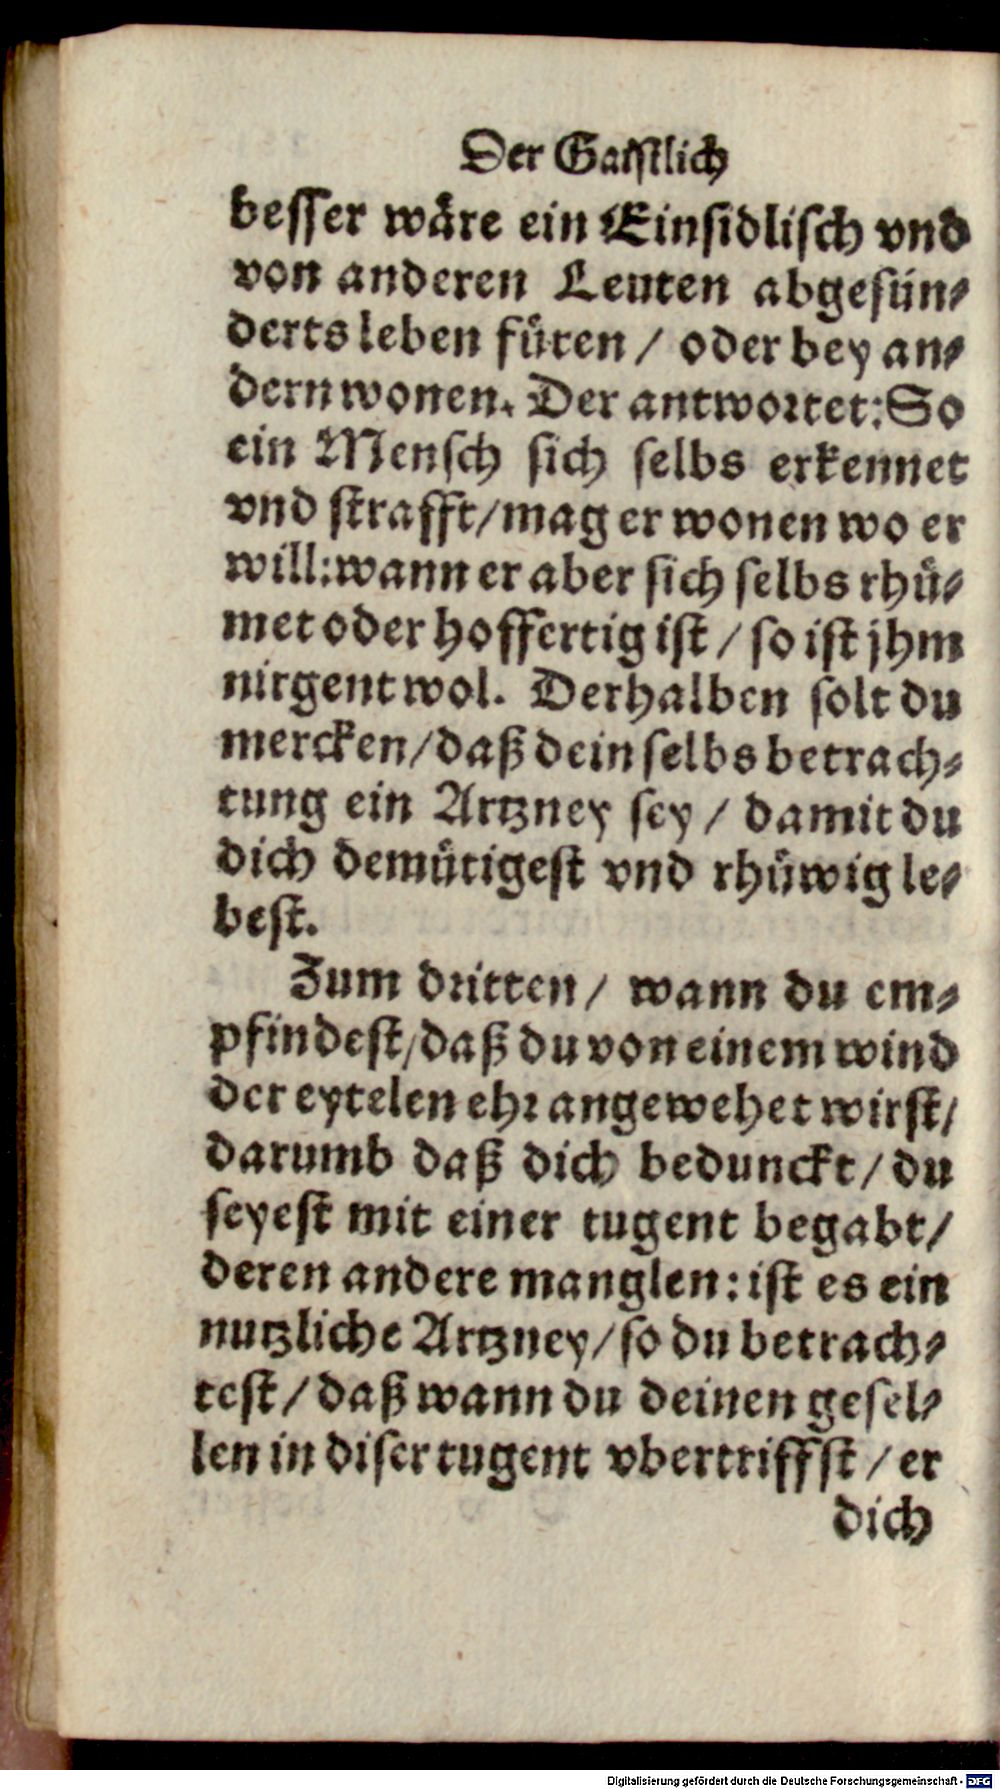 Der Gaiſtlich
beſſer wäre ein Einſidliſch vnd
von anderen Leuten abgeſün⸗
derts leben füren / oder bey an⸗
dern wonen. Der antwortet: So
ein Menſch ſich ſelbs erkennet
vnd ſtrafft / mag er wonen wo er
will: wann er aber ſich ſelbs rhü⸗
met oder hoffertig iſt / ſo iſt jhm
nirgent wol. Derhalben ſolt du
mercken / daß dein ſelbs betrach⸗
tung ein Artzney ſey / damit du
dich demütigeſt vnd rhüwig le⸗
beſt.
Zum dritten / wann du em⸗
pfindeſt / daß du von einem wind
der eytelen ehr angewehet wirſt /
darumb daß dich bedunckt / du
ſeyeſt mit einer tugent begabt /
deren andere manglen: iſt es ein
nutzliche Artzney / ſo du betrach⸗
teſt / daß wann du deinen geſel⸗
len in diſer tugent vbertriffſt / er
dich
Digitalisierung gefördert durch die Deutsche Forschungsgemeinschaft - DFG